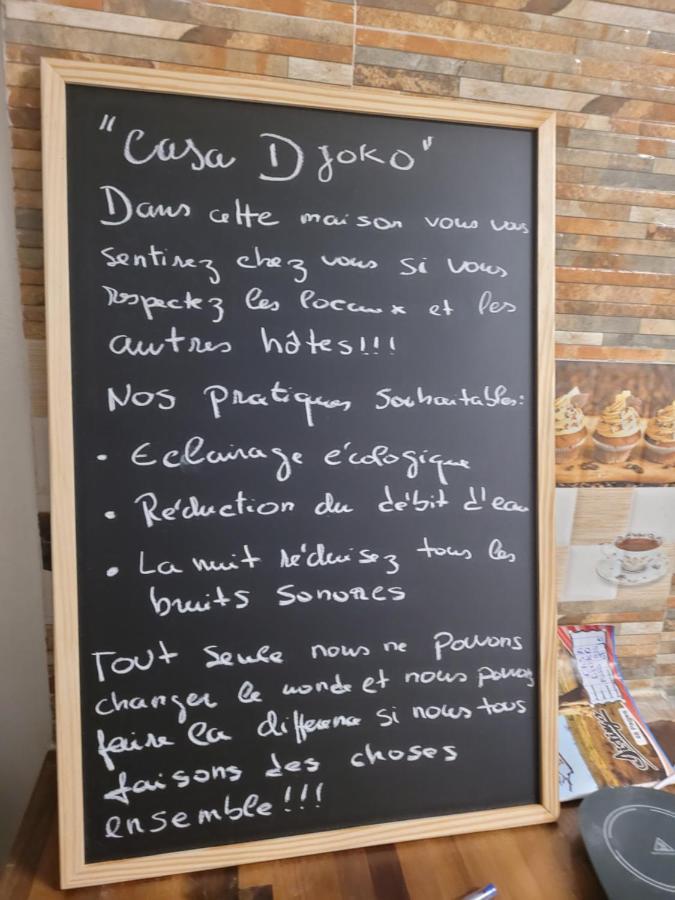 "Casa Djoko"
Dans cette maison vous vous
sentirez chez vous si vous
respectez les locaux et les
autres hôtes!!!
Nos pratiques souhaitables:
• Eclairage écologique
• Réduction du débit d'eau
• La nuit réduisez tous les
bruits sonores
Tout seule nous ne pouvons
changer le monde et nous pouvons
faire la différence si nous tous
faisons des choses
ensemble!!!